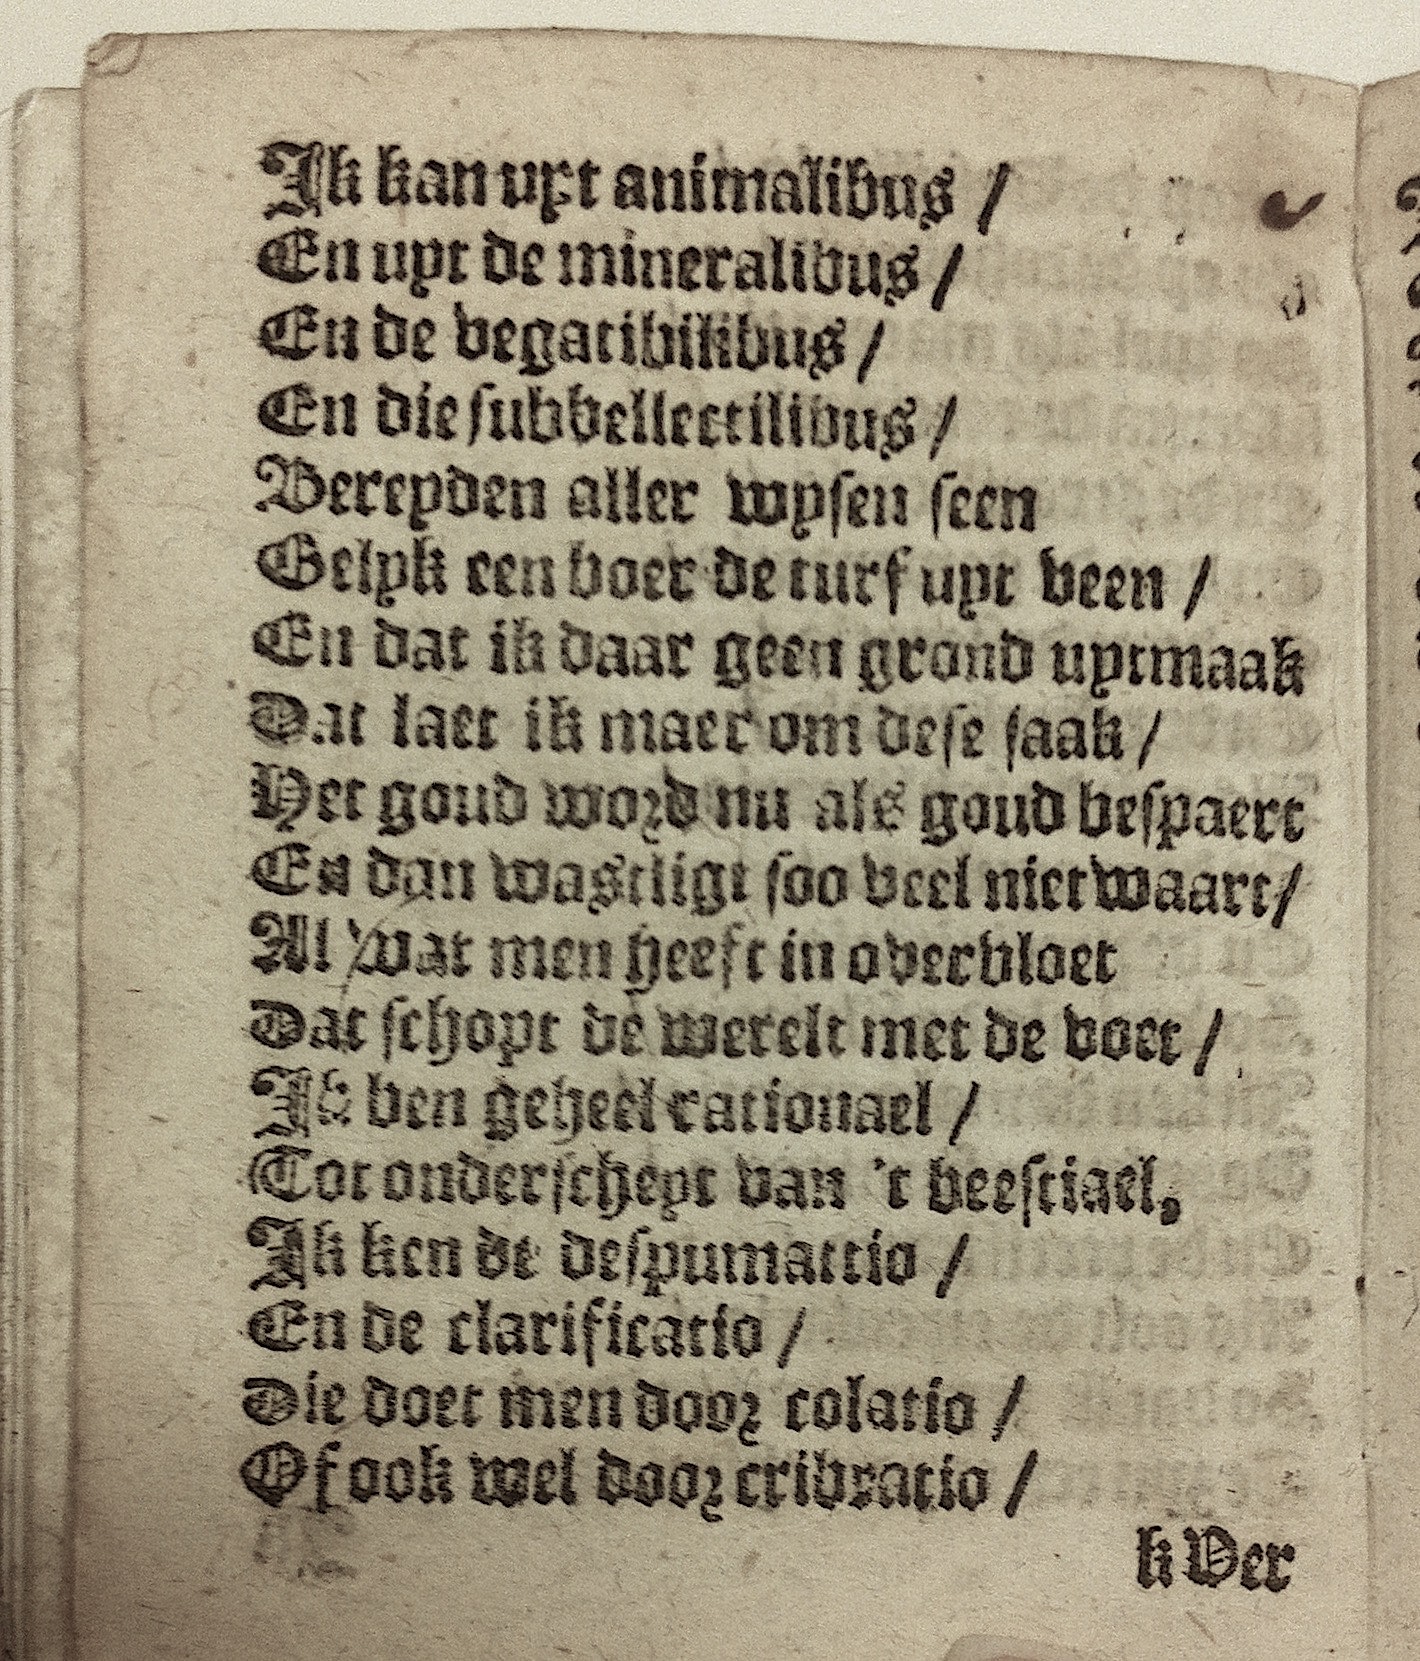 Ik kan uyt animalibus /
En uyt de mineralibus /
En de vegatibilibus /
En die subbellectilibus /
Bereyden aller wysen seen
Gelyk een boer de turf uyt veen /
En dat ik daar geen grond uytmaak
Dat laet ik maer om dese saak /
Het goud word nu als goud bespaert
En dan wastligt soo veel niet waart /
Al wat men heeft in overvloet
Dat schopt de werelt met de voet /
Ik ben geheel rationael /
Tot onderscheyt van 't beestiael,
Ik ken de despumattio /
En de clarificatio /
Die doet men door colatio /
Of ook wel door cribratio /
k Ver